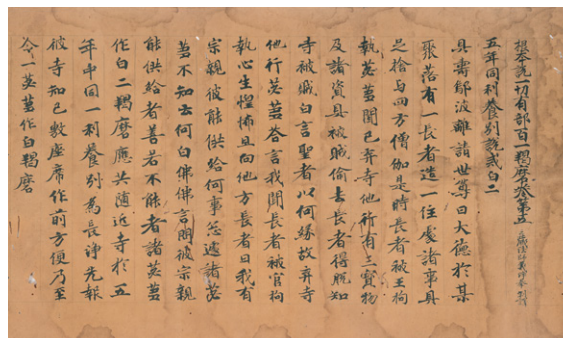 根本說一切有部百一羯磨卷第五 三藏法師義淨奉 制譯
五年同利養別說戒白二
具壽鄔波離請世尊曰大德於某
聚落有一長者造一住處諸事具
足捨与四方僧伽是時長者被王拘
執苾蒭聞已弃寺他行有三寶物
及諸資具被賊偷去長者得脫知
寺被賊白言聖者以何緣故弃寺
他行苾蒭答言我聞長者被官拘
執心生惶怖且向他方長者曰我有
宗親彼能供給何事怱遽諸苾
蒭不知云何白佛佛言問彼宗親
能供給者善若不能者諸苾蒭
作白二羯磨應共隨近寺於五
年中同一利養別為長淨先報
彼寺知已敷座席作前方便乃至
令一苾蒭作白羯磨